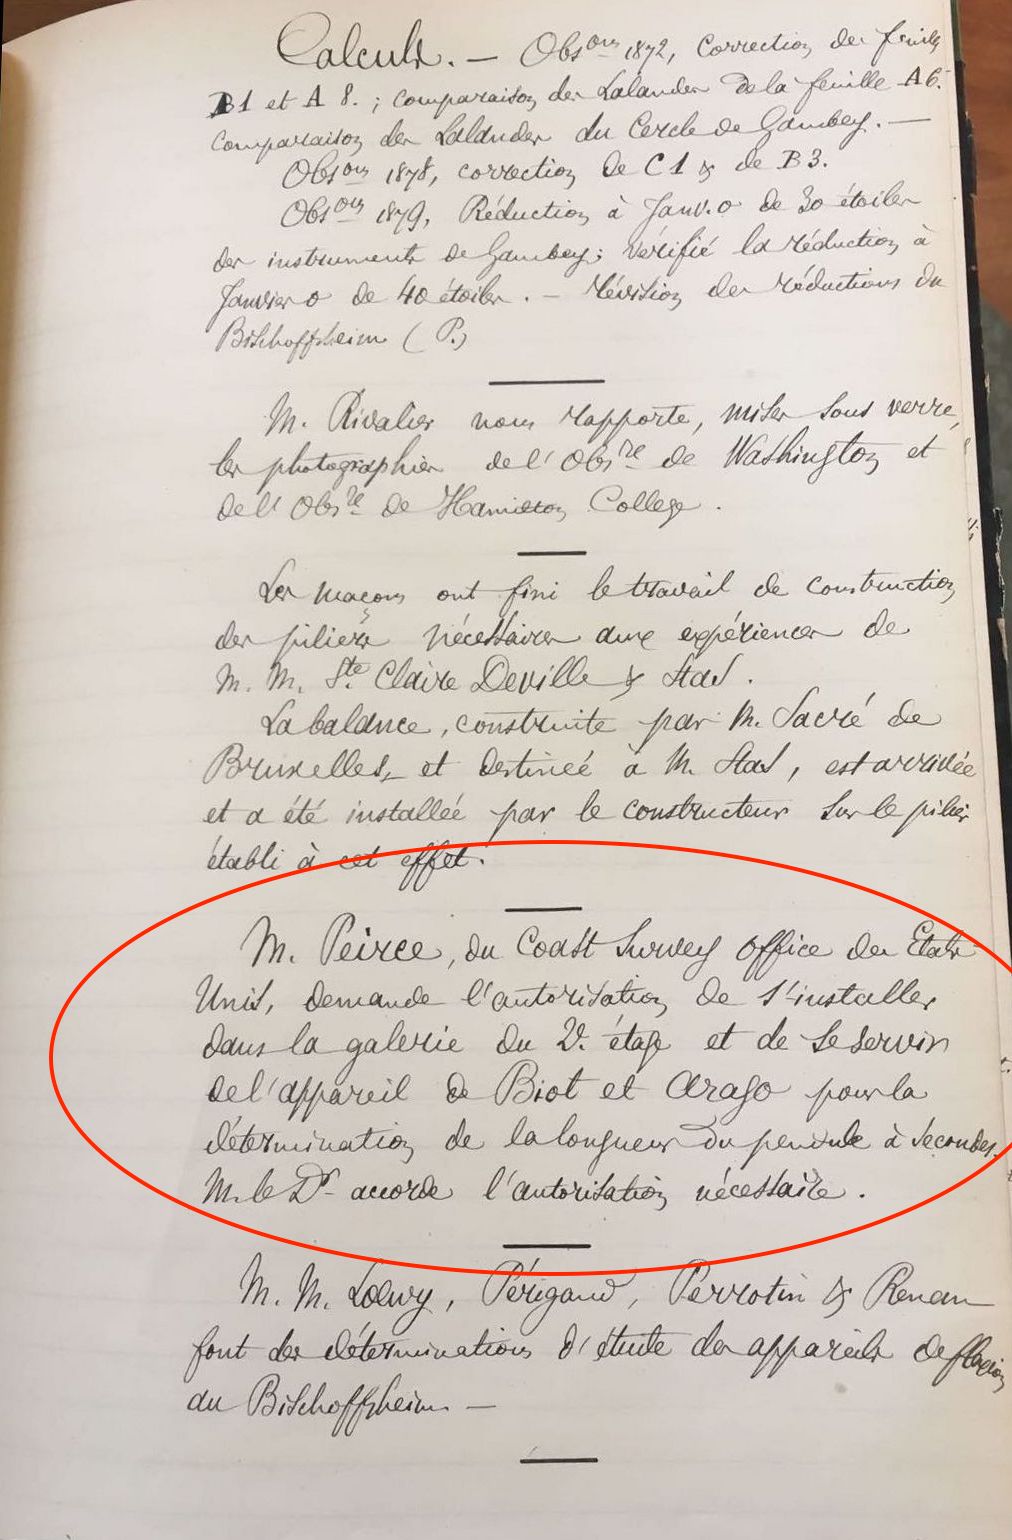 Calculs. — Obs^ons 1872, correction des feuilles
B1 et A 8. ; comparaison des Lalandes de la feuille A6.
Comparaison des Lalandes du Cercle de Gambey. —
Obs^ons 1878, correction de C1 & de B3.
Obs^ons 1879, Réduction à Janv. 0 de 30 étoiles
des instruments de Gambey; vérifié la réduction à
Janvier 0 de 40 étoiles. — Révision des réductions du
Bischoffsheim (P.)
M. Rivalier nous rapporte, mises sous verre,
les photographies de l'Obs^re de Washington et
de l'Obs^re de Hamilton College.
Les maçons ont fini le travail de construction
des piliers nécessaires aux expériences de
M. M. S^te Claire Deville & Stas.
La balance, construite par M. Sacré de
Bruxelles, et destineé à M. Stas, est arrivée
et a été installeé par le constructeur sur le pilier
établi à cet effet.
M. Peirce, du Coast Survey Office des Etats
Unis, demande l'autorisation de s'installer
dans la galerie du 2^e étage et de se servir
de l'appareil de Biot et Arago pour la
détermination de la longueur du pendule à secondes.
M. le D^r accorde l'autorisation nécessaire.
M. M. Loewy, Périgaud, Perrotin & Renan
font des déterminations d'étude des appareils de flexion
du Bischoffsheim —